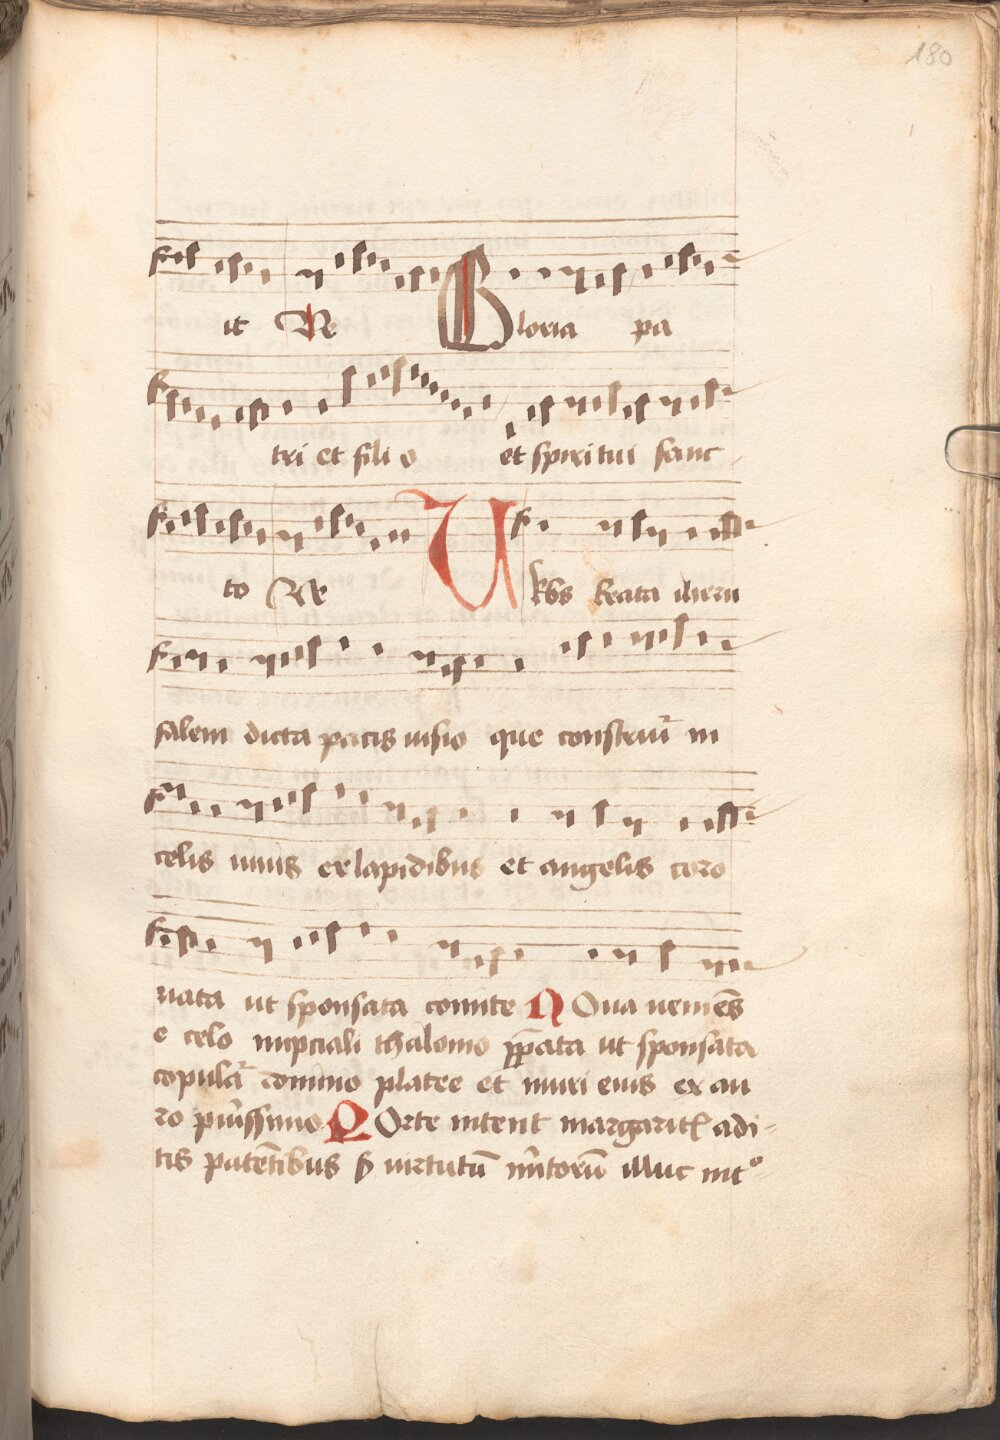 180
it Re Gloria pa
tri et filio et spiritui sanc
to Re Urbs beata iheru
salem dicta pacis uisio que construit̃ in
celis uiuis ex lapidibus et angelis coro
nata ut sponsata comite N Oua ueniẽs
e celo nupciali thalomo p̃pata ut sponsata
copulat̃ domino platee et muri eius ex au
ro purissimo P Orte nitent margarit adi-
tis patẽtibus uirtutũ m̃itorũ illuc int